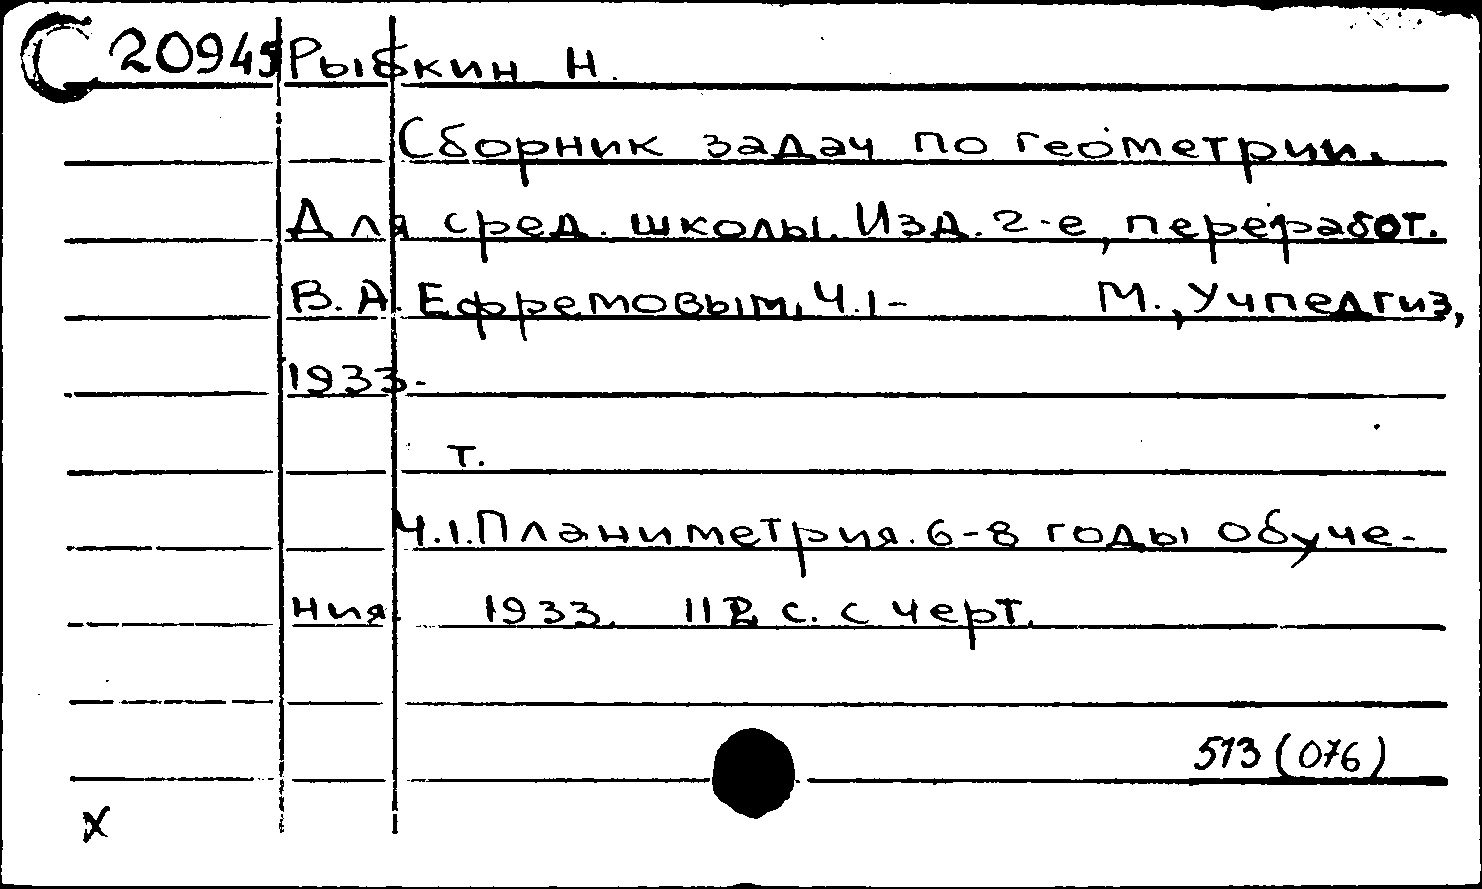 С 20945 Рыбкин Н.
Сборник задач по геометрии.
Для сред. школы. Изд. 2-е, переработ.
В. А. Ефремовым, Ч.1- М., Учпедгиз,
1933-
т.
Ч.1. Планиметрия. 6-8 годы обуче-
ния. 1933. 112 с. с черт.
513 (076)
х